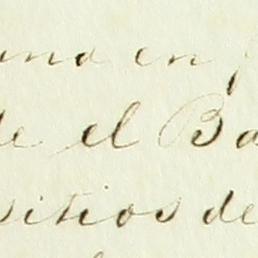 en
de el Ba
sitios de